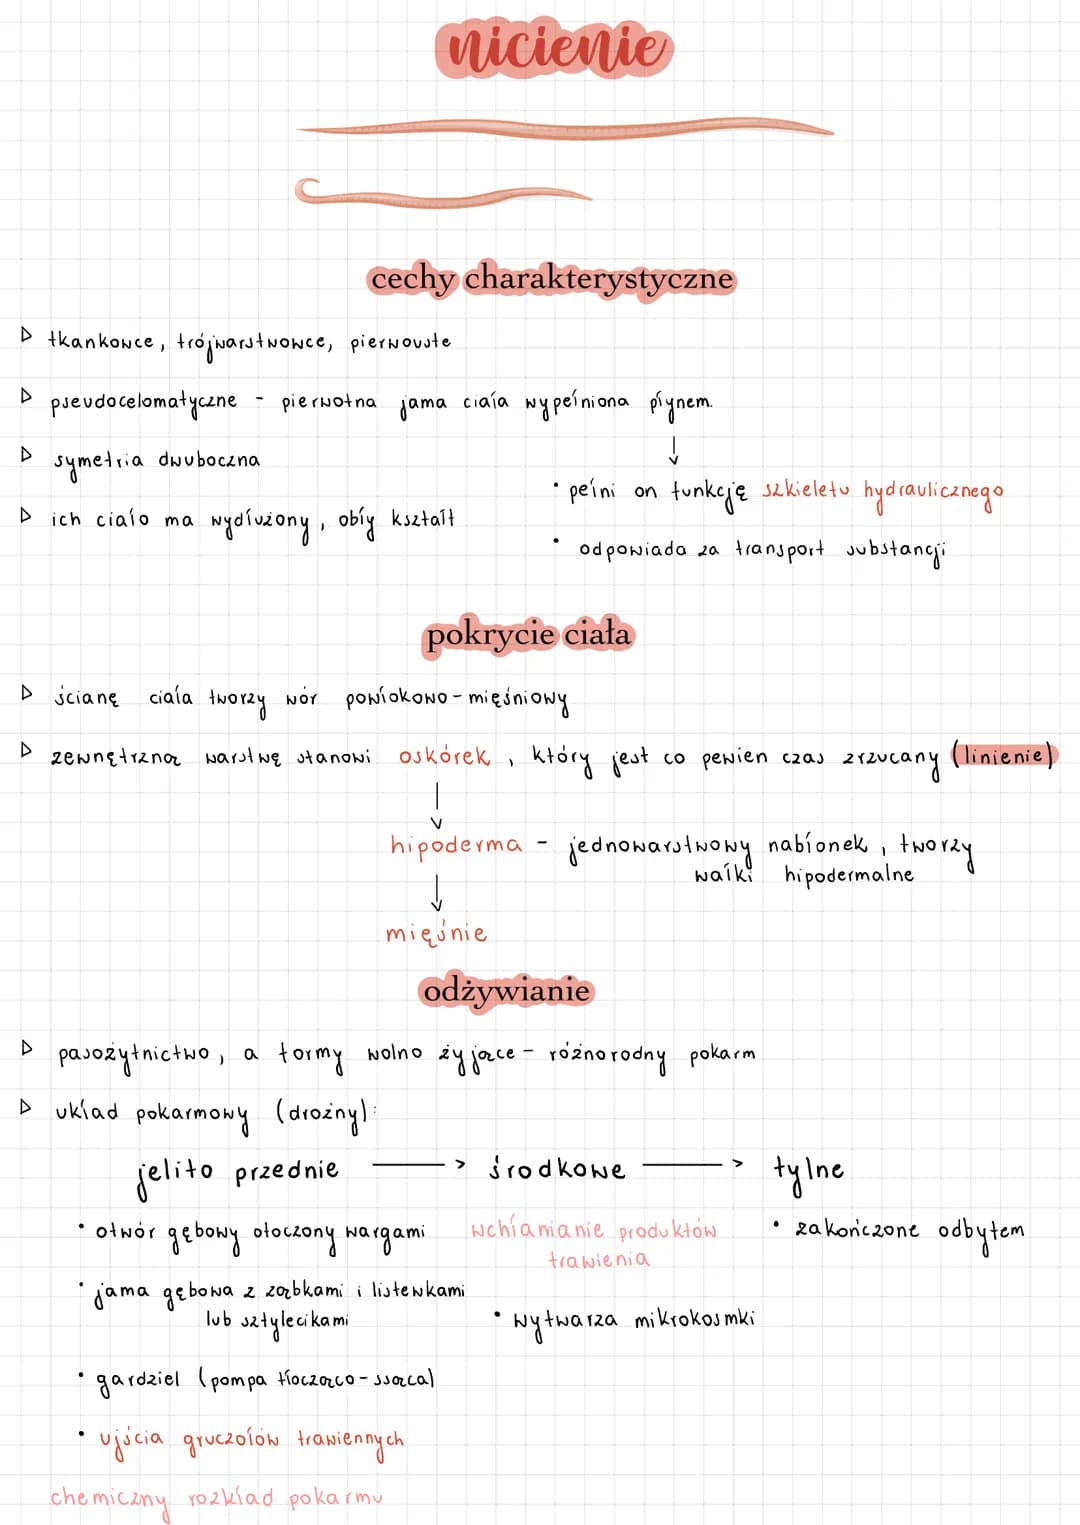 nicienie
cechy charakterystyczne
▷ tkankowce, trójwarstwowce, pierwouste
▷ pseudocelomatyczne - pierwotna jama ciała wypełniona płynem.
▷ symetria dwuboczna
• pełni on funkcję szkieletu hydraulicznego
▷ ich ciało ma wydłużony, obły kształt
• odpowiada za transport substancji
pokrycie ciała
▷ ścianę ciała tworzy wór powłokowo-mięśniowy
▷ zewnętrzną warstwę stanowi oskórek, który jest co pewien czas zrzucany (linienie)
hipoderma - jednowarstwowy nabłonek, tworzy
wałki hipodermalne
mięśnie
odżywianie
▷ pasożytnictwo, a formy wolno żyjące - różnorodny pokarm
▷ układ pokarmowy (drożny):
jelito przednie → środkowe → tylne
• otwór gębowy otoczony wargami wchłanianie produktów • zakończone odbytem
trawienia
• jama gębowa z ząbkami i listewkami
lub sztylecikami • wytwarza mikrokosmki
• gardziel (pompa tłocząco-ssąca)
• ujścia gruczołów trawiennych
chemiczny rozkład pokarmu